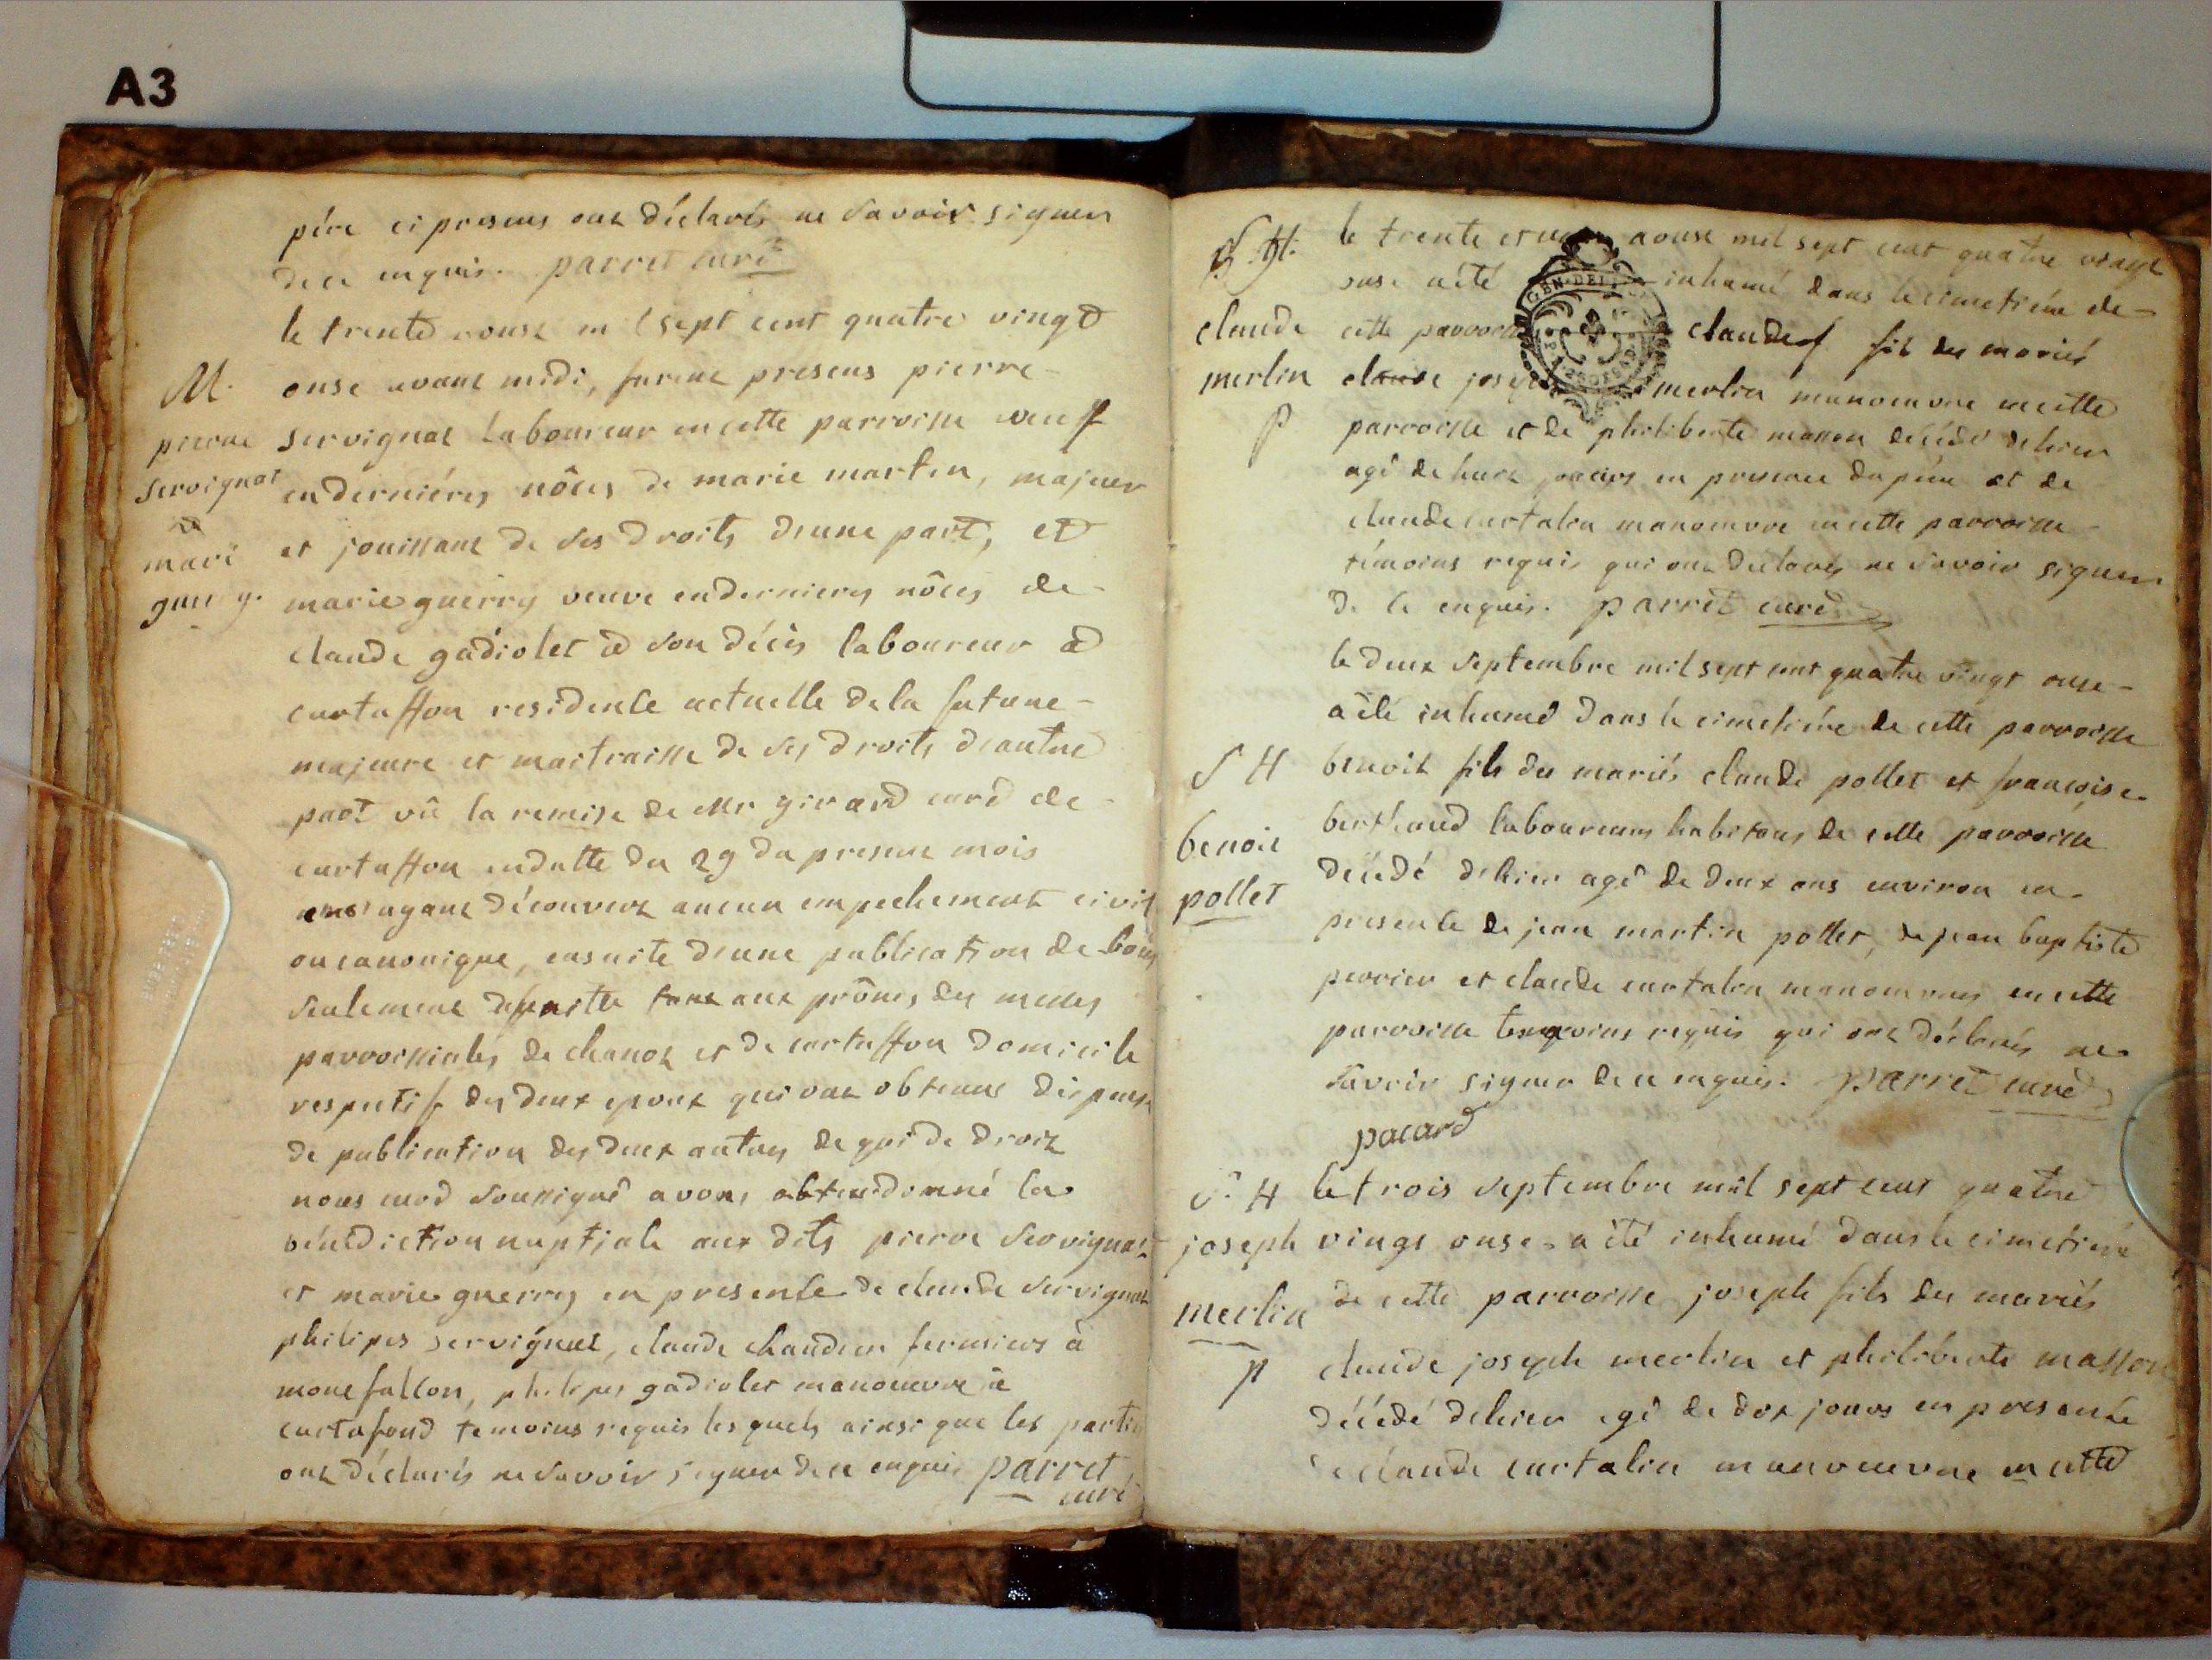 A3
père ci presens ont déclarés ne savoir signer
de ce enquis. parret curé
le trente aoust mil sept cent quatre vingt
M.
onse avant midi, furent presens pierre
pierre
servignat laboureur en cette parroisse veuf
servignat
en derniéres nôces de marie martin, majeur
et
et jouissant de ses droits d'une part, et
mari
guerry.
marie guerry veuve en dernieres nôces de
claude gadiolet a son décès laboureur a
curtaffon residente actuelle de la future
majeure et maitraisse de ses droits d'autre
part vû la remise de Mr girard curé de
curtaffon en datte du 29 du present mois
ayant découvert aucun empechement civil
ou canonique, ensuite d'une publication de bans
seulement faitte aux prônes des messes
parroissiales de chanoz et de curtaffon domicile
respectif des deux epoux qui ont obtenus dispense
de publication des deux autres de qui de droit
nous curé soussigné avons donné la
bénédiction nuptiale aux dits pierre servignat
et marie guerry en presence de claude servignat
philipes servignat, claude chaudeur fermiers à
montfallon, philipes gadiolet manoeuvre à
curtafond temoins requis les quels ainsi que les parties
ont déclarés ne savoir signer de ce enquis parret
curé
S. H.
claude
merlin
p
le trente et un aoust mil sept cent quatre vingt
onse a été inhumé dans le cimetiére de
GEN. DE
cette parroisse claude fils des mariés
claude joseph merlin manoeuvre en cette
parroisse et de philiberte masson décédé de hier
agé de huit jours en presence du pére et de
claude curtalin manoeuvre en cette parroisse
témoins requis qui ont déclarés ne savoir signer
de ce enquis. parret curé
le deux septembre mil sept cent quatre vingt onse
a été inhumé dans le cimetiére de cette parroisse
S H
benoit fils des mariés claude pollet et françoise
benoit
berthaud laboureurs habitans de cette parroisse
pollet
décédé de hier agé de deux ans environ en
presence de jean martin pollet, de jean baptiste
perrier et claude curtalin manoeuvres en cette
parroisse temoins requis qui ont déclarés ne
savoir signer de ce enquis. parret curé
pacard
S. H
le trois septembre mil sept cent quatre
joseph
vingt onse a été inhumé dans le cimetiére
merlin
de cette parroisse joseph fils des mariés
p
claude joseph merlin et philiberte masson
décédé de hier agé de dix jours en presence
de claude curtalin manoeuvre en cette